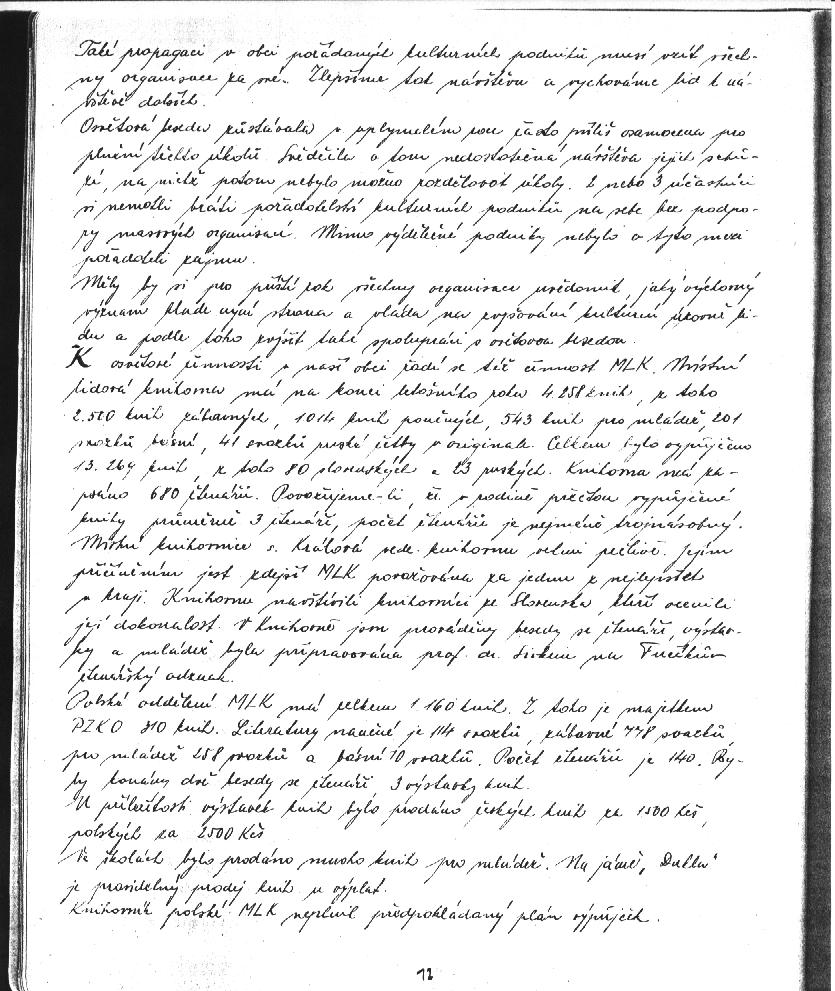 Také propagaci v obci pořádaných kulturních podniků musí vzít všech-
ny organisace za své. Zlepšíme tak návštěvu a vychováme lid k ná-
vštěvě dalších.
Osvětová beseda zůstávala v uplynulém roce často příliš osamocena pro
plnění těchto úkolů. Svědčila o tom nedostatečná návštěva jejich schů-
zí, na nichž potom nebylo možno rozdělovat úkoly. 2 nebo 3 účastníci
si nemohli bráti pořadatelství kulturních podniků na sebe bez podpo-
ry masových organisací. Mimo výdělečné podniky nebylo o tyto mezi
pořadateli zájmu.
Měly by si pro příští rok všechny organisace uvědomit, jaký výchovný
význam klade nyní strana a vláda na zvyšování kulturní úrovně li-
du a podle toho zvýšit také spolupráci s osvětovou besedou.
K osvětové činnosti v naší obci řadí se též činnost MLK. Místní
lidová knihovna má na konci letošního roku 4 258 knih, z toho
2.500 knih zábavných, 1014 knih poučných, 543 knih pro mládež, 201
svazků básní, 41 svazků ruské četby v originale. Celkem bylo vypůjčeno
13.269 knih, z toho 80 slovenských a 23 ruských. Knihovna má za-
psáno 680 čtenářů. Považujeme-li, že v rodině přečtou vypůjčené
knihy průměrně 3 čtenáři, počet čtenářů je nejméně trojnásobný.
Místní knihovnice s. Králová vede knihovnu velmi pečlivě. Jejím
přičiněním jest zdejší MLK považována za jednu z nejlepších
v kraji. Knihovnu navštívili knihovníci ze Slovenska, kteří ocenili
její dokonalost. V knihovně jsou prováděny besedy se čtenáři, výstav-
ky a mládež byla připravována prof. dr. na Fučíkův
čtenářský odznak.
Polské oddělení MLK má celkem 1 160 knih. Z toho je majetkem
PZKO 810 knih. Literatury naučné je 114 svazků, zábavné 778 svazků,
pro mládež 258 svazků a básní 10 svazků. Počet čtenářů je 140. By-
ly konány dvě besedy se čtenáři, 3 výstavky knih.
U příležitosti výstavek knih bylo prodáno českých knih za 1500 Kčs,
polských za 2500 Kčs
Ve školách bylo prodáno mnoho knih pro mládež. Na jámě „Dukla“
je pravidelný prodej knih u výplat.
Knihovník polské MLK neplnil předpokládaný plán výpůjček.
12